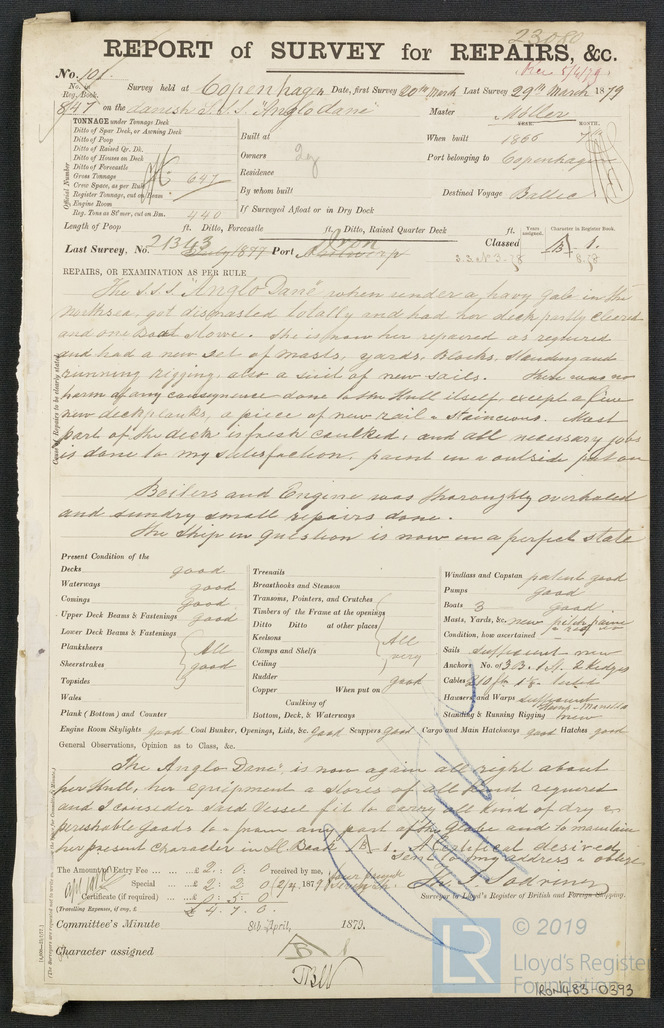 23080
REPORT of SURVEY for REPAIRS, &c.
No. 101. Rec 5/4/79
No. in Reg. Book. Survey held at Copenhagen Date, first Survey 20th March Last Survey 29th March 1879
847 on the danish S.S.S. "Anglo Dane" Master Möller
TONNAGE under Tonnage Deck
Ditto of Spar Deck, or Awning Deck
Ditto of Poop
Ditto of Raised Qr. Dk.
Ditto of Houses on Deck
Ditto of Forecastle
Gross Tonnage 647
Crew Space, as per Rule
Register Tonnage, cut on Beam
Engine Room
Reg. Tons as St'mer, cut on Bm. 440
Official Number
Built at
Owners
Residence
By whom built
If Surveyed Afloat or in Dry Dock
YEAR. MONTH.
When built 1866 7
Port belonging to Copenhagen
Destined Voyage Baltic
Length of Poop ft. Ditto, Forecastle ft. Ditto, Raised Quarter Deck ft.
Years assigned. Character in Register Book.
Last Survey, No. 21343 July 1877 Port Antwerp Iron Classed A-1.
S.S. No 3-78 8.78
REPAIRS, OR EXAMINATION AS PER RULE
The S.S.S. "Anglo Dane" when under a havy Gale in the
northsea, got dismasled totally and had her deck partly cleared
and one Boat Stowe. She is now her repaired as required
and had a new set of masts, yards, Blocks, Standing and
running Rigging, also a suit of new sails. There was no
harm of any consequence done to the Hull itself, except a few
new deckplanks, a piece of new rail & Stancions. Most
part of the deck is fresh caulked, and all necessary jobs
is done to my satisfaction. paint in a outside put on
Boilers and Engine was thoroughly overhauled
and sundry small repairs done.
The Ship in question is now in a perfect state
Present Condition of the
Decks good
Waterways good
Comings good
Upper Deck Beams & Fastenings good
Lower Deck Beams & Fastenings
Planksheers All
Sheerstrakes good
Topsides
Wales
Plank (Bottom) and Counter
Treenails
Breasthooks and Stemson
Transoms, Pointers, and Crutches
Timbers of the Frame at the openings
Ditto Ditto at other places
Keelsons All
Clamps and Shelfs very
Ceiling
Rudder good
Copper When put on
Caulking of
Bottom, Deck, & Waterways
Windlass and Capstan patent good
Pumps good
Boats 3 good
Masts, Yards, &c. new pitch pine
Condition, how ascertained
Sails sufficient new
Anchors No. of 3 B. 1 St. 2 Kedges
Cables
Hawsers and Warps sufficient Hemp - Manilla
Standing & Running Rigging new
Engine Room Skylights good Coal Bunker, Openings, Lids, &c. good Scuppers good Cargo and Main Hatchways good Hatches good
General Observations, Opinion as to Class, &c.
The Anglo Dane, is now again all right about
her Hull, her equipment & Stores of all kind required
and I consider said Vessel fit to carry all kind of dry &
perishable Goods to & from any part of the Globe and to maintain
her present Character in R. Book A 1. A Certificat desired
sent to my address & oblige
The Amount of Entry Fee ... £ 2 : 0 : 0 received by me,
Special ... £ 2 : 2 : 0 (2/4, 1879)
Certificate (if required) ... £ 0 : 5 : 0
(Travelling Expenses, if any, £ £ 4. 7. 0.
Surveyor to Lloyd's Register of British and Foreign Shipping.
Committee's Minute 8th April, 1879.
Character assigned A 1
© 2019
LR
Lloyd's Register
Foundation
IRON483-0393